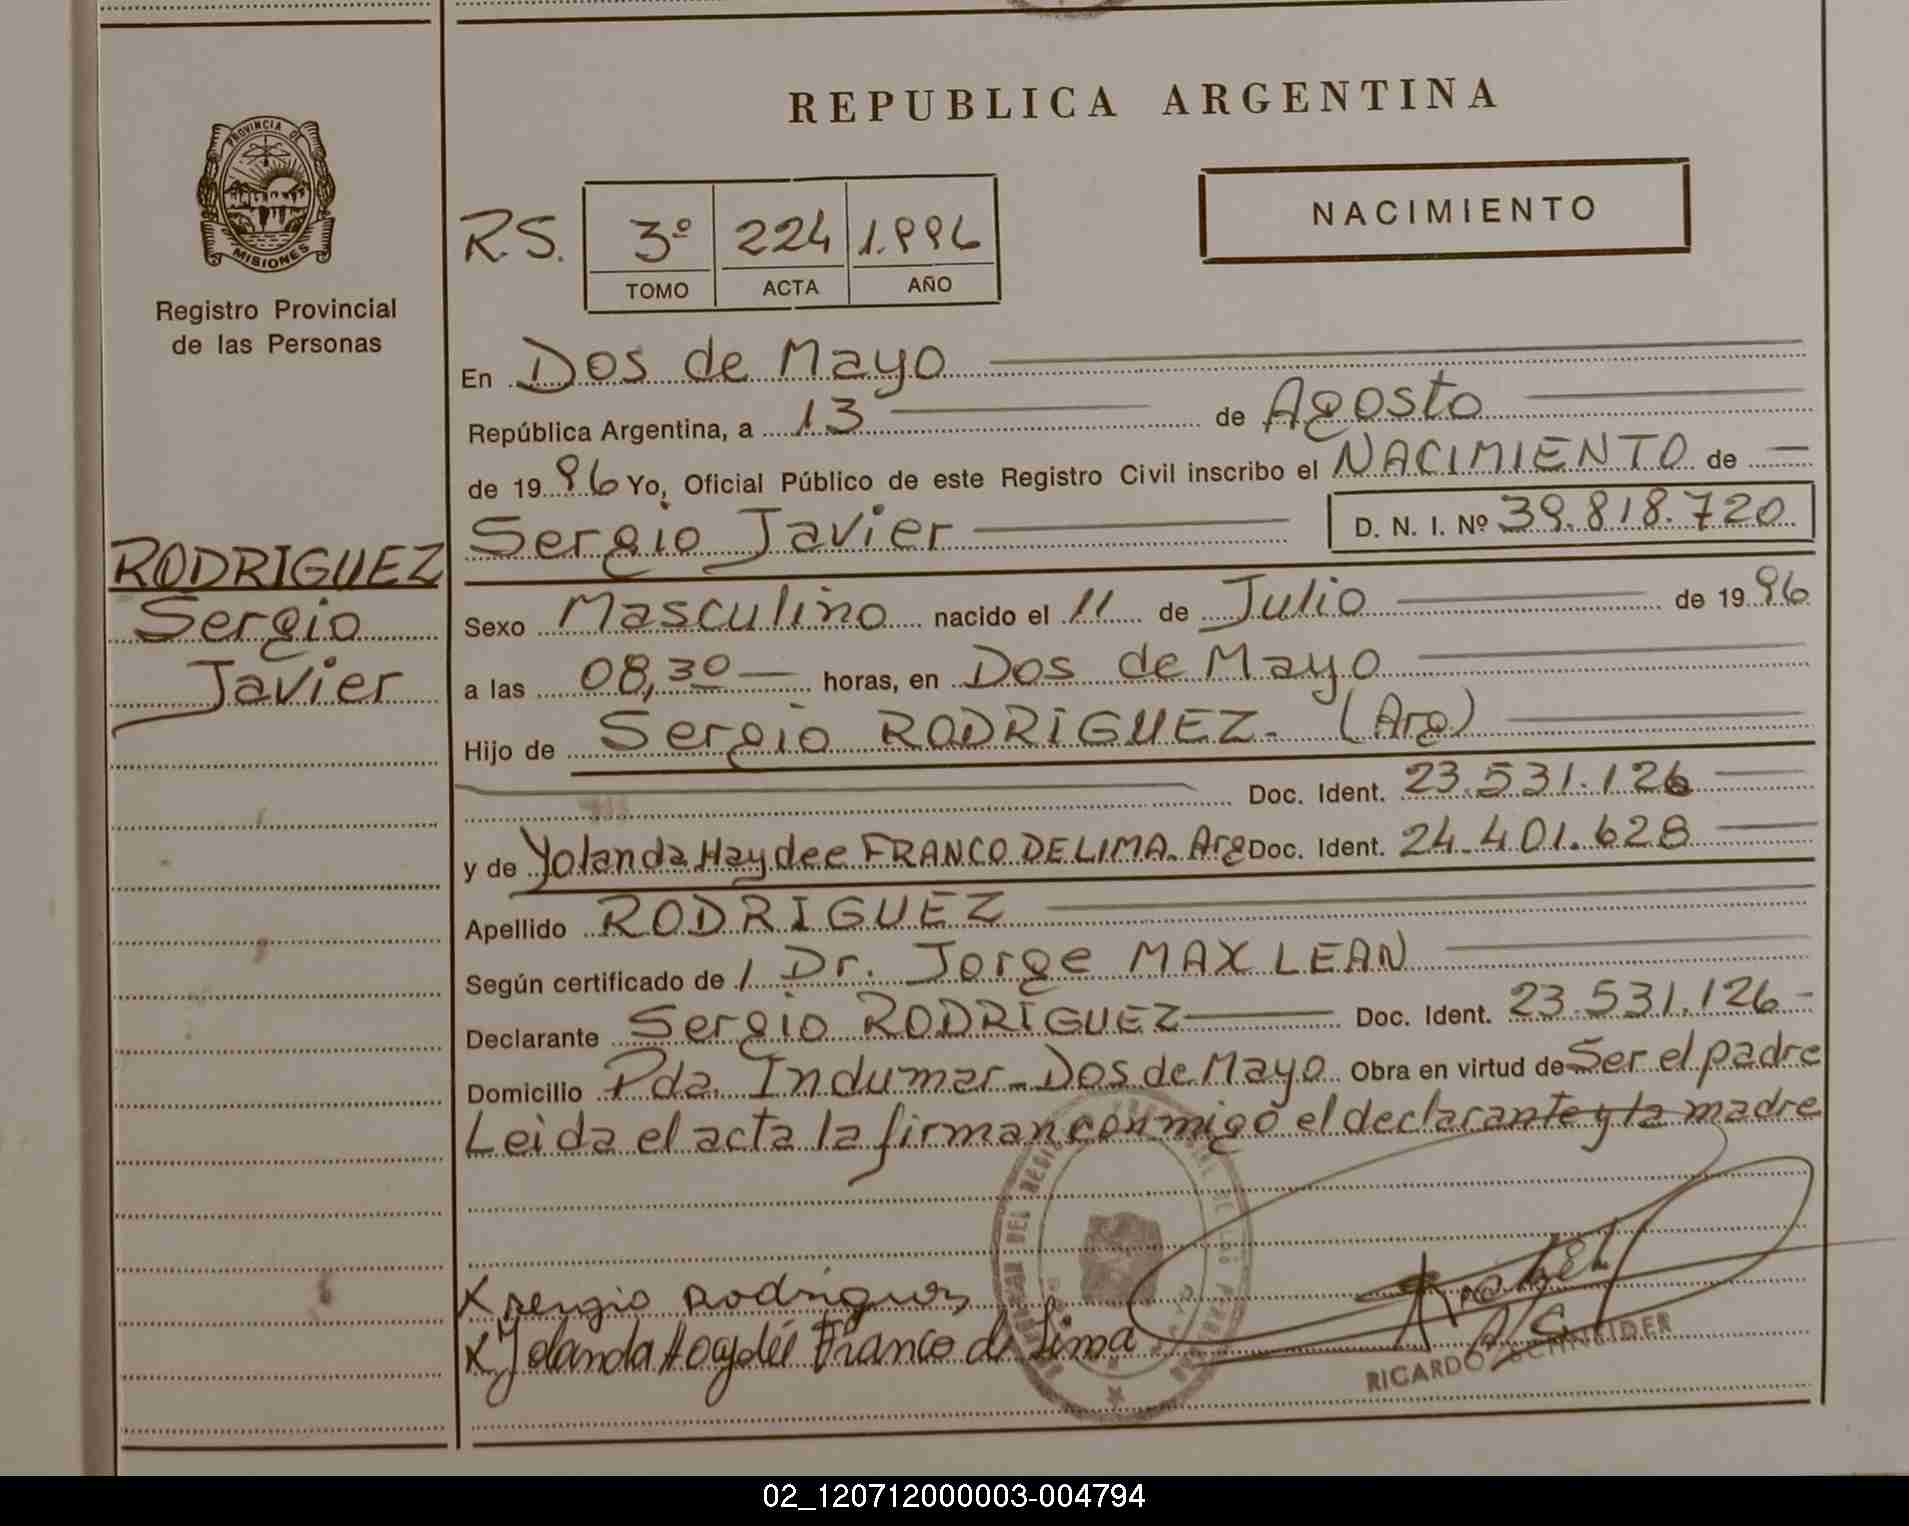 REPUBLICA ARGENTINA
PROVINCIA DE
MISIONES
Registro Provincial
de las Personas
R.S. 3º 224 1.996
TOMO ACTA AÑO
NACIMIENTO
En Dos de Mayo
República Argentina, a 13 de Agosto
de 1996 Yo, Oficial Público de este Registro Civil inscribo el NACIMIENTO de
Sergio Javier D. N. I. Nº 39.818.720
RODRIGUEZ
Sergio
Javier
Sexo Masculino nacido el 11 de Julio de 1996
a las 08,30 horas, en Dos de Mayo
Hijo de Sergio RODRIGUEZ. (Arg)
Doc. Ident. 23.531.126
y de Yolanda Haydee FRANCO DE LIMA. Arg Doc. Ident. 24.401.628
Apellido RODRIGUEZ
Según certificado de / Dr. Jorge MAX LEAN
Declarante Sergio RODRIGUEZ Doc. Ident. 23.531.126
Domicilio Pda. Indumar - Dos de Mayo Obra en virtud de Ser el padre
Leida el acta la firman conmigo el declarante y la madre
X sergio Rodriguez
X Yolanda Haydeé Franco de Lima
RICARDO SCHNEIDER
02_120712000003-004794